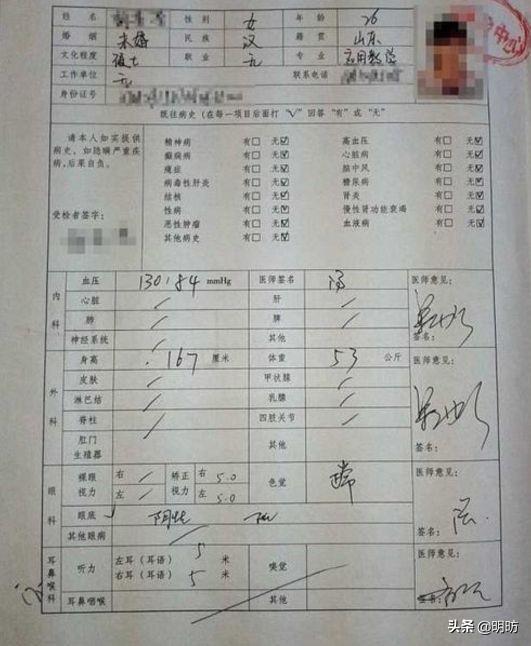 姓名 性别 女 年龄 26
婚姻 未婚 民族 汉 籍贯 山东
文化程度 硕士 职业 无 专业 应用数学
工作单位 无 联系电话
身份证号
既往病史（在每一项目后面打“√”回答“有”或“无”
请本人如实提供病史，如隐瞒严重疾病，后果自负。
受检者签字：
精神病 有□ 无☑ 高血压 有□ 无☑
癫痫病 有□ 无☑ 心脏病 有□ 无☑
癔症 有□ 无☑ 脑中风 有□ 无☑
病毒性肝炎 有□ 无☑ 糖尿病 有□ 无☑
结核 有□ 无☑ 肾炎 有□ 无☑
性病 有□ 无☑ 慢性肾功能衰竭 有□ 无☑
恶性肿瘤 有□ 无☑ 血液病 有□ 无☑
其他病史 有□ 无☑
内科 血压 130/84 mmHg 医师签名 医师意见：
心脏 / 肝 /
肺 / 脾 /
神经系统 / 其他 签名：
外科 身高 167 厘米 体重 53 公斤 医师意见：
皮肤 / 甲状腺 /
淋巴结 / 乳腺 /
脊柱 / 四肢关节 /
肛门生殖器 其他 签名：
眼科 裸眼视力 右 / 左 / 矫正视力 右 5.0 左 5.0 色觉 医师意见：
眼底
其他眼病 签名：
耳鼻喉科 听力 左耳（耳语） 5 米 嗅觉 医师意见：
右耳（耳语） 5 米
耳鼻咽喉 其他 签名：
头条 @明昉